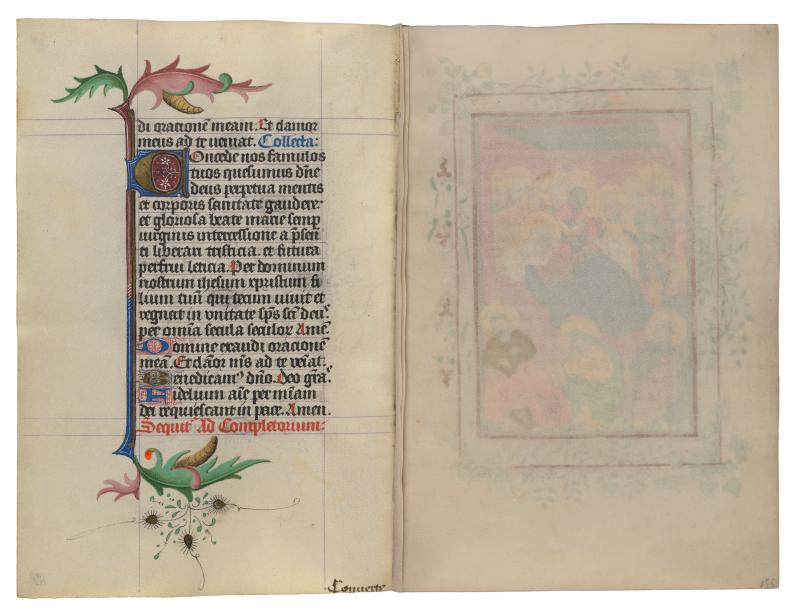 di oracionē meam. Et clamor
meus ad te veniat. Collecta:
Oncede nos famulos
tuos quesumus dn̄e
deus perpetua mentis
et corporis sanitate gaudere:
et gloriosa beate marie semp
virginis intercessione a p̄sen
ti liberari tristicia. et futura
perfrui leticia. Per dominum
nostrum ihesum xpristum fi
lium tuū qui tecum vivit et
regnat in vnitate sp̄s sc̄t deus.
per om̄ia secula seculor Amē.
Domine exaudi oracionē
meā. Et clāor m̄s ad te veīat.
Benedicamꝰ dn̄o. Deo gr̄a.
Fidelium aīe per mīam
dei requiescant in pace. Amen.
Sequitꝰ Ad Completorium:
Conuerte
155